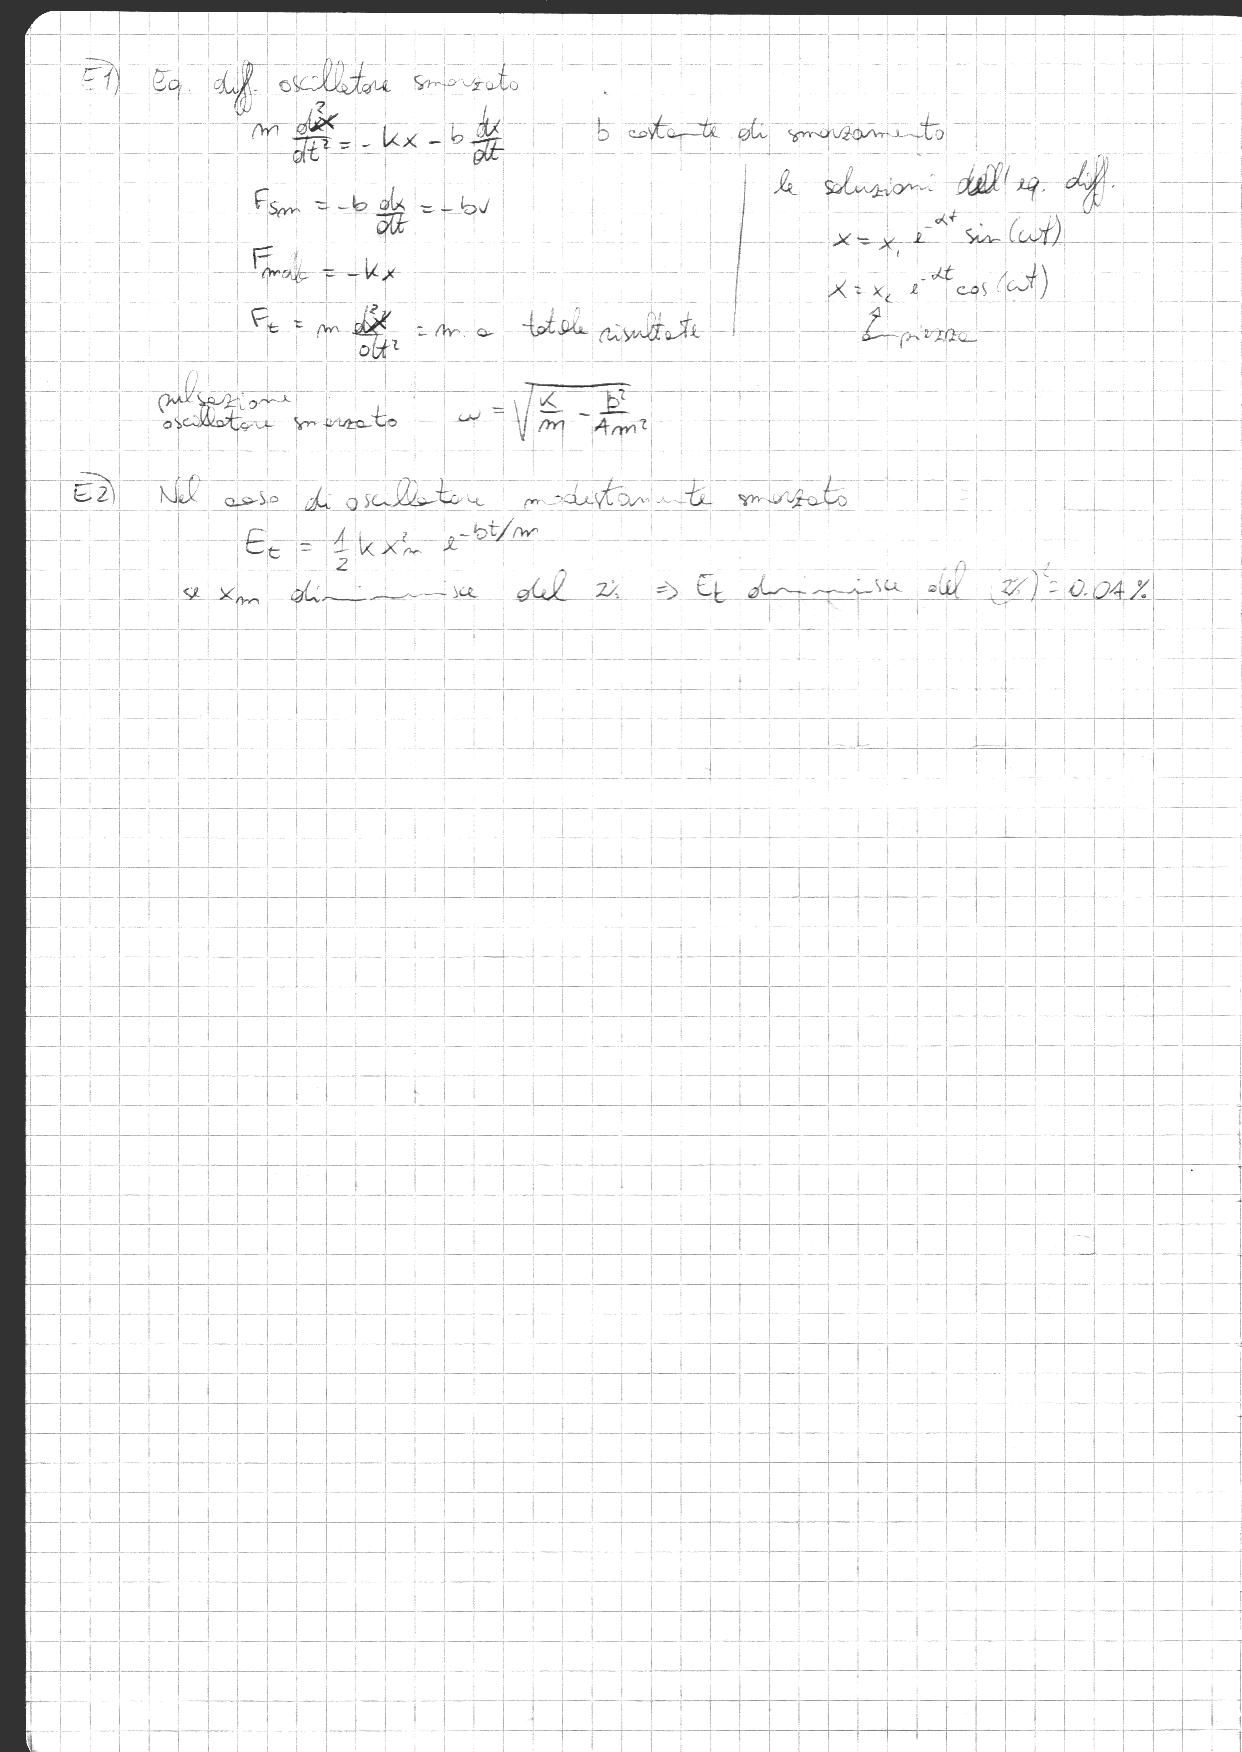 E1) Eq. diff. oscillatore smorzato
m d²x/dt² = - kx - b dx/dt b costante di smorzamento
Fsm = -b dx/dt = -bv
Fmol = -kx
Ft = m d²x/dt² = m·a totale risultate
le soluzioni dell'eq. diff.
x = x₁ e^-αt sin(ωt)
x = x₂ e^-αt cos(ωt)
ampiezza
pulsazione
oscillatore smorzato ω = √(k/m - b²/4m²)
E2) Nel caso di oscillatore modestamente smorzato
Et = 1/2 k x²m e^-bt/m
se xm diminuisce del 2% ⇒ Et diminuisce del (2%)² = 0.04%